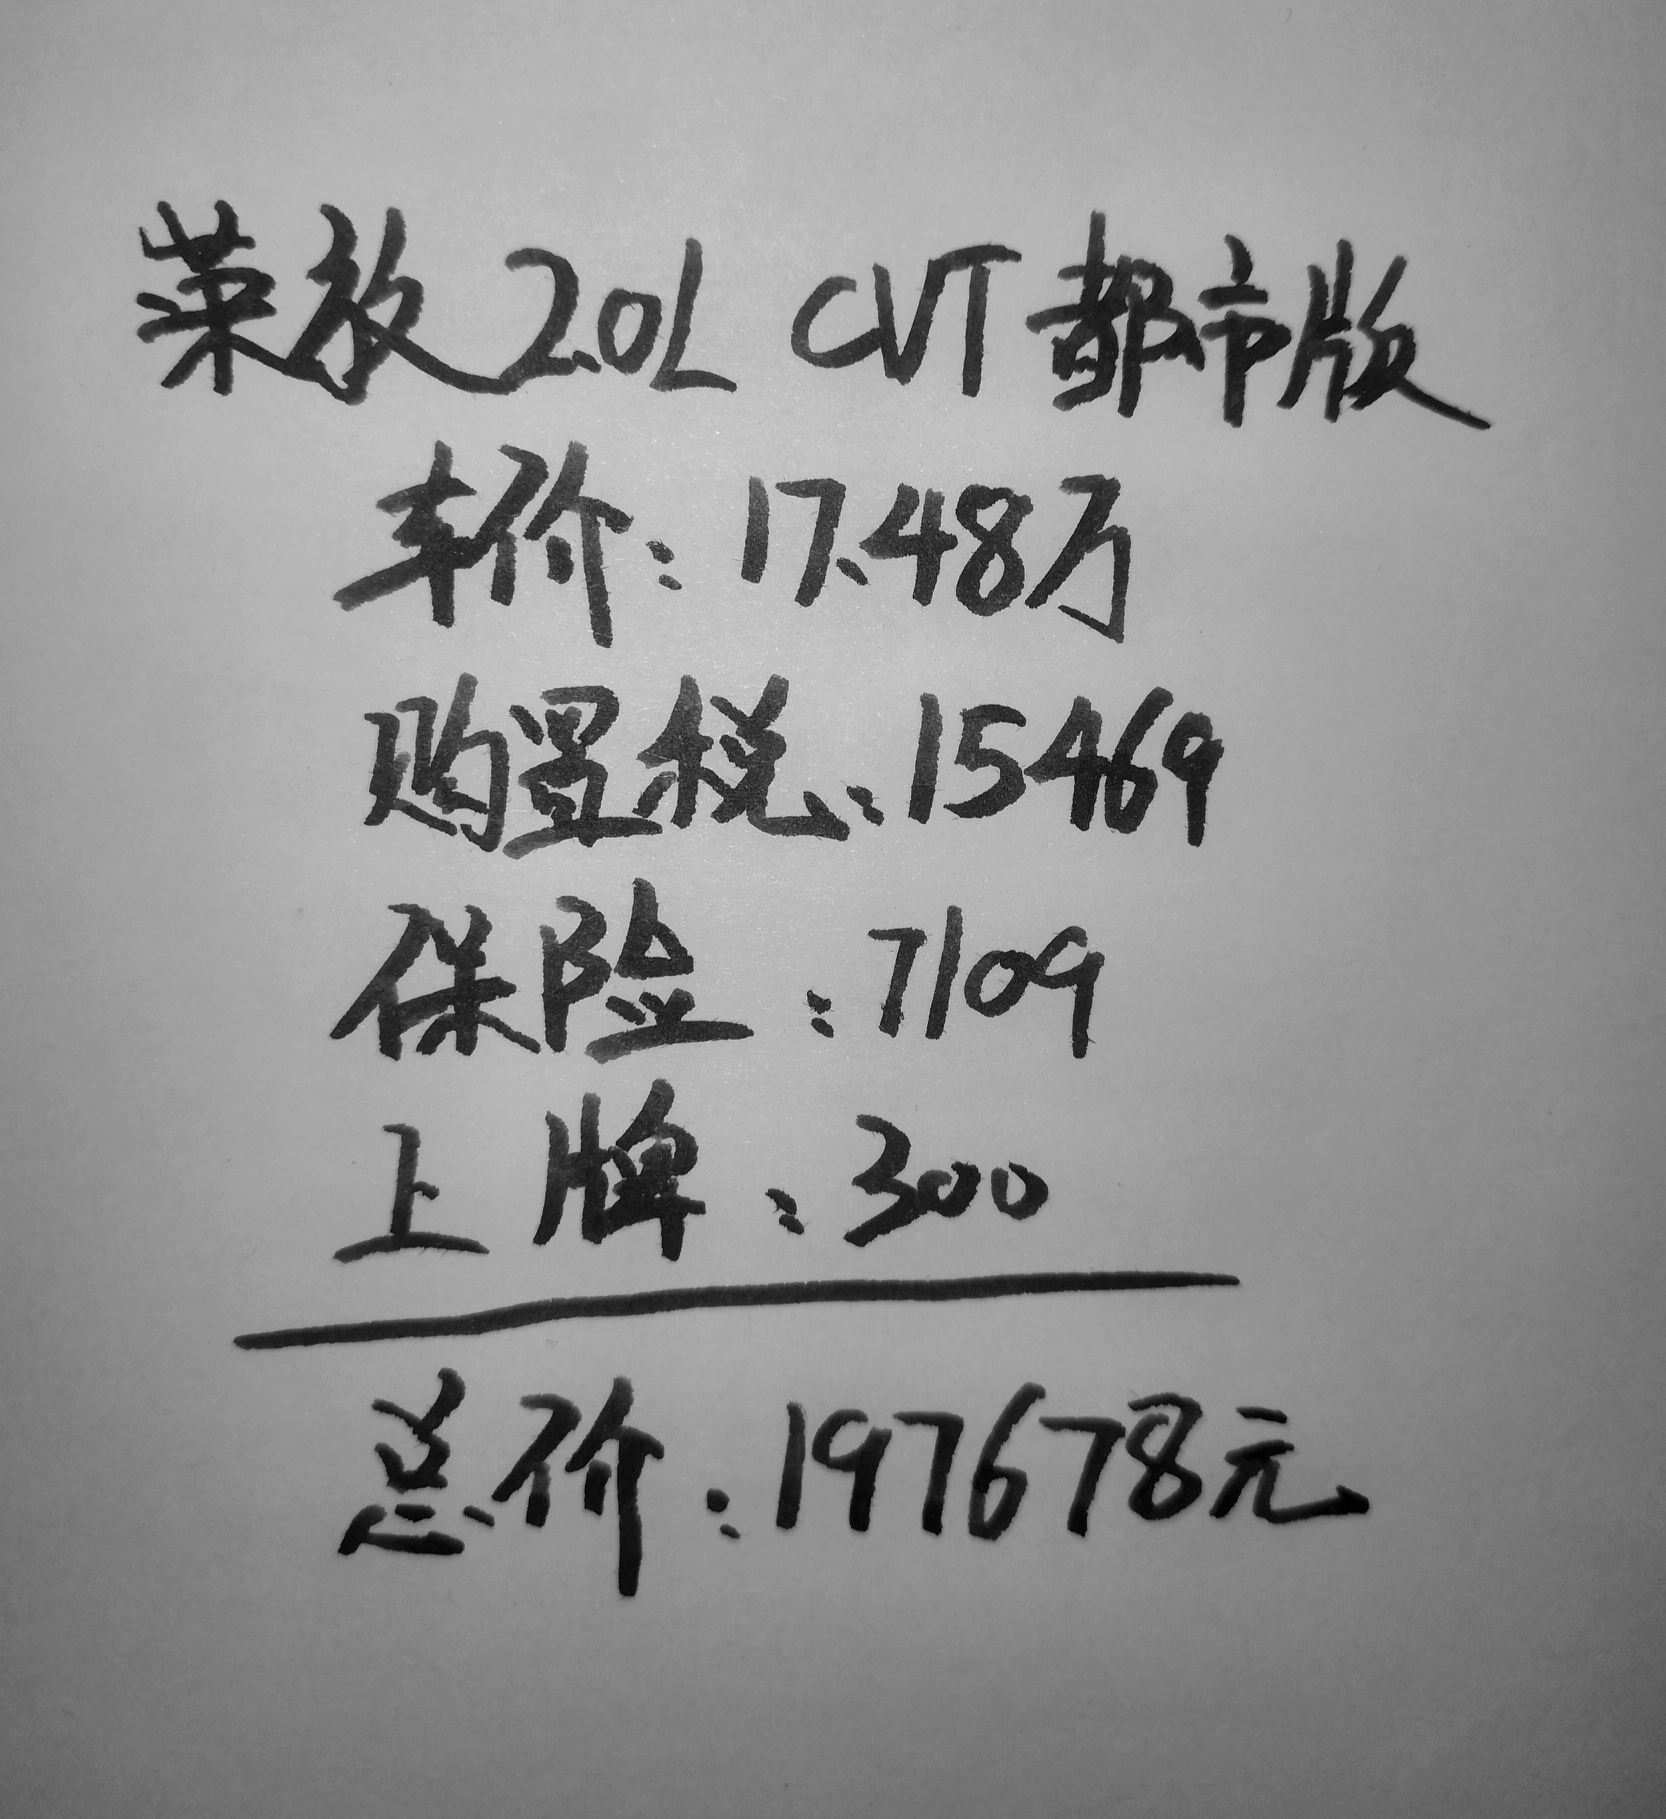 荣放2.0L CVT都市版
车价:17.48万
购置税:15469
保险:7109
上牌:300
总价:197678元